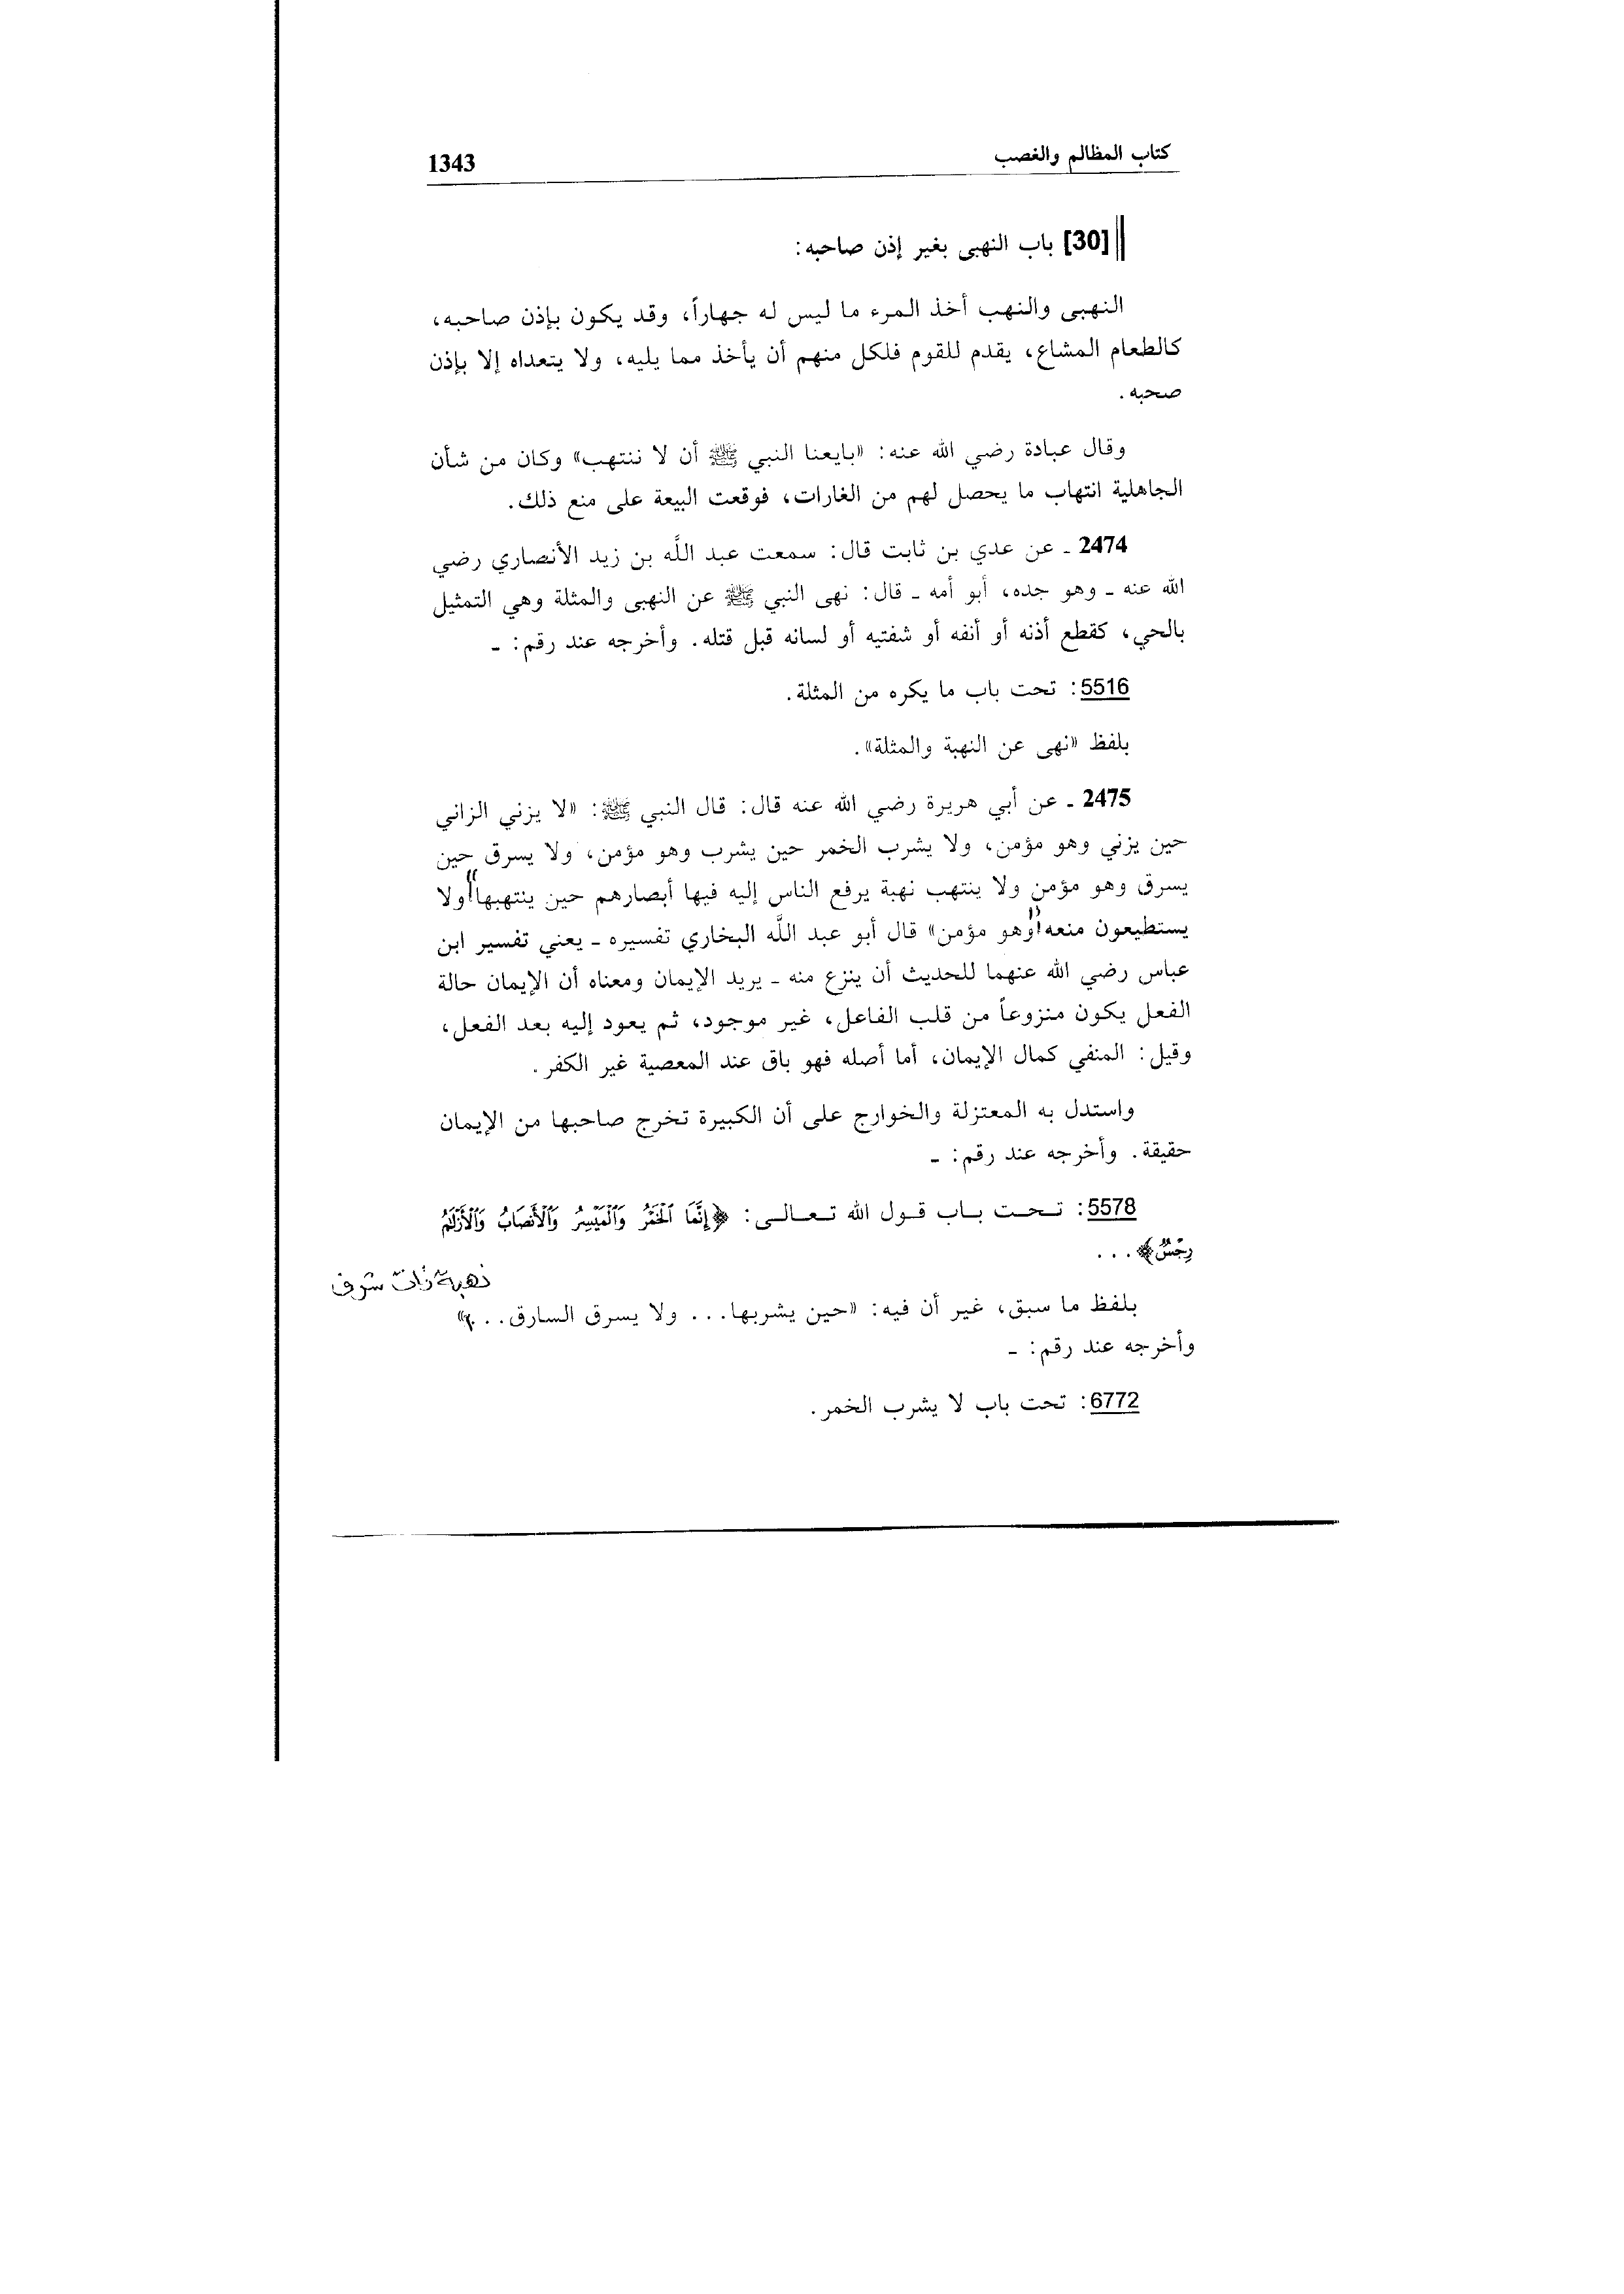 كتاب المظالم والغصب
1343
[30] باب النهبى بغير إذن صاحبه:
النهبى والنهب أخذ المرء ما ليس له جهاراً، وقد يكون بإذن صاحبه،
كالطعام المشاع، يقدم للقوم فلكل منهم أن يأخذ مما يليه، ولا يتعداه إلا بإذن
صحبه.
وقال عبادة رضي الله عنه: «بايعنا النبي ﷺ أن لا ننتهب» وكان من شأن
الجاهلية انتهاب ما يحصل لهم من الغارات، فوقعت البيعة على منع ذلك.
2474 ـ عن عدي بن ثابت قال: سمعت عبد اللَّه بن زيد الأنصاري رضي
الله عنه ـ وهو جده، أبو أمه ـ قال: نهى النبي ﷺ عن النهبى والمثلة وهي التمثيل
بالحي، كقطع أذنه أو أنفه أو شفتيه أو لسانه قبل قتله. وأخرجه عند رقم: ـ
5516: تحت باب ما يكره من المثلة.
بلفظ «نهى عن النهبة والمثلة».
2475 ـ عن أبي هريرة رضي الله عنه قال: قال النبي ﷺ: «لا يزني الزاني
حين يزني وهو مؤمن، ولا يشرب الخمر حين يشرب وهو مؤمن، ولا يسرق حين
يسرق وهو مؤمن ولا ينتهب نهبة يرفع الناس إليه فيها أبصارهم حين ينتهبها" ولا
يستطيعون منعه "وهو مؤمن» قال أبو عبد اللَّه البخاري تفسيره ـ يعني تفسير ابن
عباس رضي الله عنهما للحديث أن ينزع منه ـ يريد الإيمان ومعناه أن الإيمان حالة
الفعل يكون منزوعاً من قلب الفاعل، غير موجود، ثم يعود إليه بعد الفعل،
وقيل: المنفي كمال الإيمان، أما أصله فهو باق عند المعصية غير الكفر.
واستدل به المعتزلة والخوارج على أن الكبيرة تخرج صاحبها من الإيمان
حقيقة. وأخرجه عند رقم: ـ
5578: تحت باب قول الله تعالى: ﴿إِنَّمَا ٱلْخَمْرُ وَٱلْمَيْسِرُ وَٱلْأَنصَابُ وَٱلْأَزْلَٰمُ
رِجْسٌ﴾...
نهبة ذات شرف
بلفظ ما سبق، غير أن فيه: «حين يشربها... ولا يسرق السارق...»
وأخرجه عند رقم: ـ
6772: تحت باب لا يشرب الخمر.